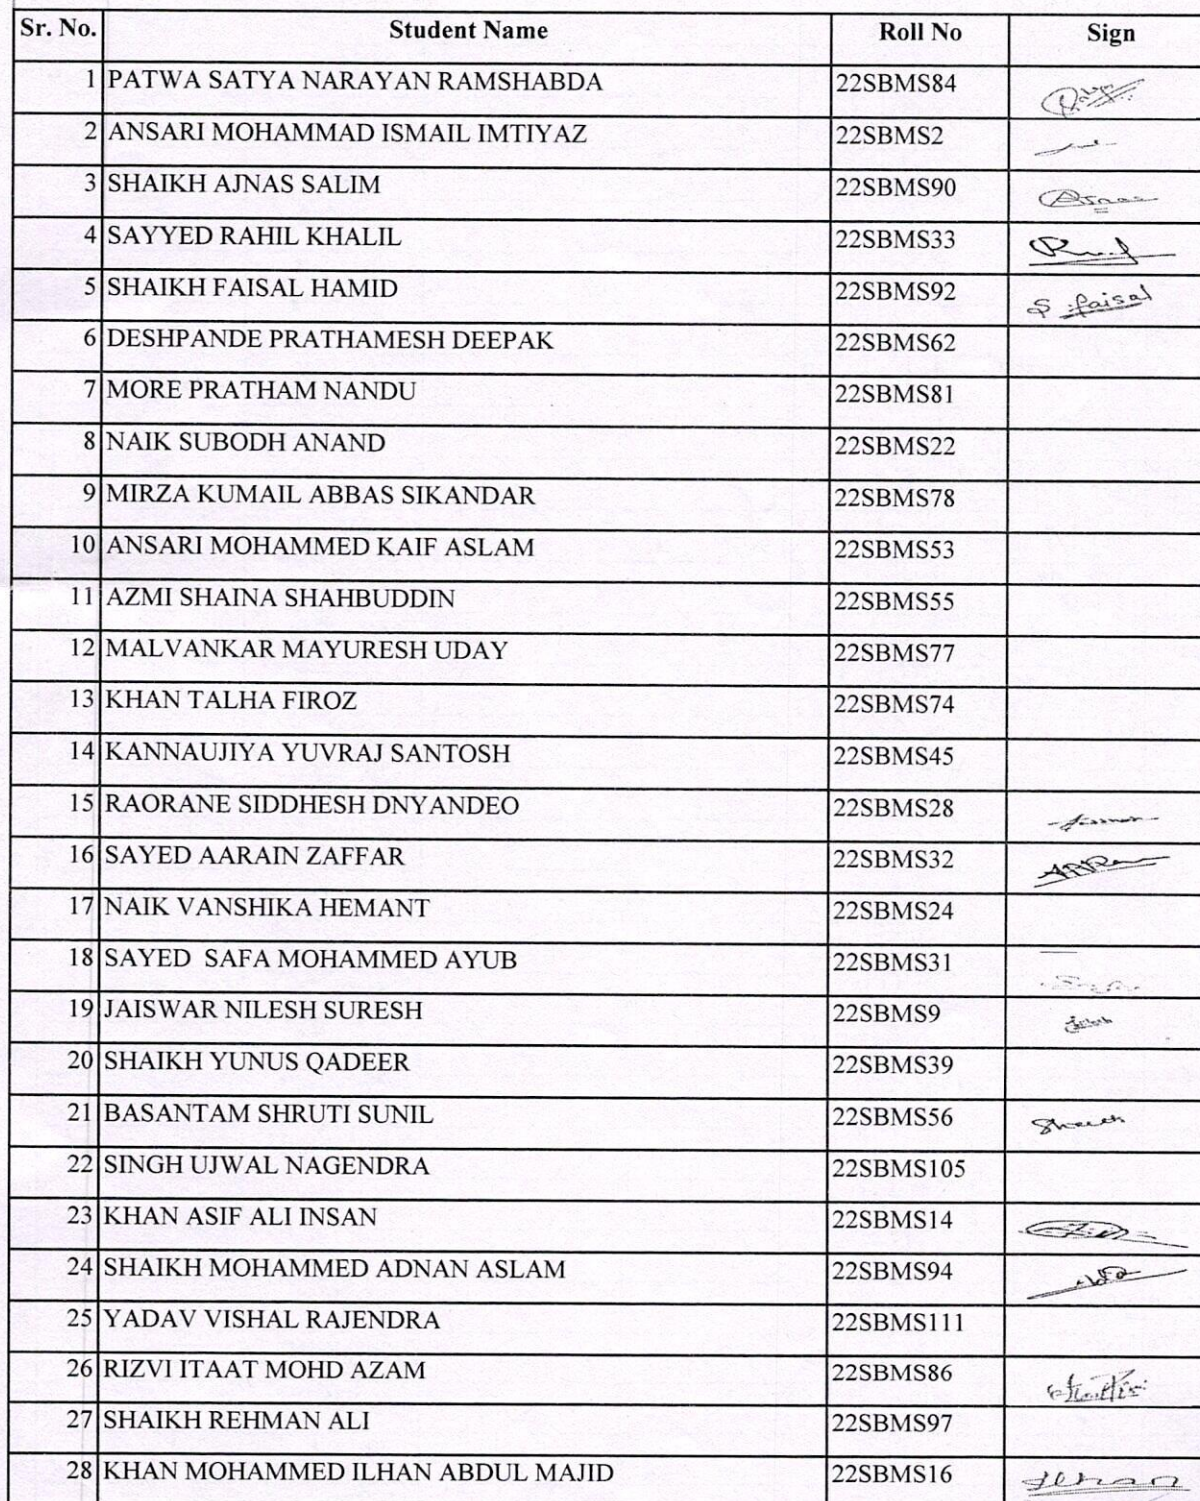 Sr. No. Student Name Roll No Sign
1 PATWA SATYA NARAYAN RAMSHABDA 22SBMS84
2 ANSARI MOHAMMAD ISMAIL IMTIYAZ 22SBMS2
3 SHAIKH AJNAS SALIM 22SBMS90 Ajnas
4 SAYYED RAHIL KHALIL 22SBMS33
5 SHAIKH FAISAL HAMID 22SBMS92 S faisal
6 DESHPANDE PRATHAMESH DEEPAK 22SBMS62
7 MORE PRATHAM NANDU 22SBMS81
8 NAIK SUBODH ANAND 22SBMS22
9 MIRZA KUMAIL ABBAS SIKANDAR 22SBMS78
10 ANSARI MOHAMMED KAIF ASLAM 22SBMS53
11 AZMI SHAINA SHAHBUDDIN 22SBMS55
12 MALVANKAR MAYURESH UDAY 22SBMS77
13 KHAN TALHA FIROZ 22SBMS74
14 KANNAUJIYA YUVRAJ SANTOSH 22SBMS45
15 RAORANE SIDDHESH DNYANDEO 22SBMS28
16 SAYED AARAIN ZAFFAR 22SBMS32
17 NAIK VANSHIKA HEMANT 22SBMS24
18 SAYED SAFA MOHAMMED AYUB 22SBMS31
19 JAISWAR NILESH SURESH 22SBMS9
20 SHAIKH YUNUS QADEER 22SBMS39
21 BASANTAM SHRUTI SUNIL 22SBMS56
22 SINGH UJWAL NAGENDRA 22SBMS105
23 KHAN ASIF ALI INSAN 22SBMS14
24 SHAIKH MOHAMMED ADNAN ASLAM 22SBMS94
25 YADAV VISHAL RAJENDRA 22SBMS111
26 RIZVI ITAAT MOHD AZAM 22SBMS86
27 SHAIKH REHMAN ALI 22SBMS97
28 KHAN MOHAMMED ILHAN ABDUL MAJID 22SBMS16 Ilhan